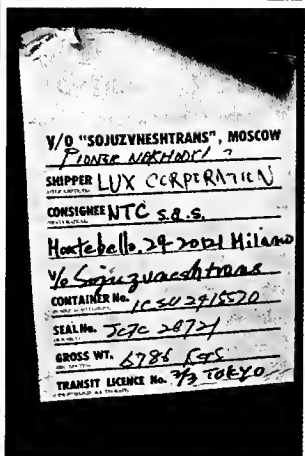 V/O "SOJUZVNESHTRANS", MOSCOW
PIONER NAKHODKI
SHIPPER LUX CORPORATION
CONSIGNEE NTC s.a.s.
Montebello, 29 20121 Milano
V/o Sojuzvneshtrans
CONTAINER No. ICSU 2915520
SEAL No. JCTC 28721
GROSS WT. 6786 KGS
TRANSIT LICENCE No. 3/3 TOKYO